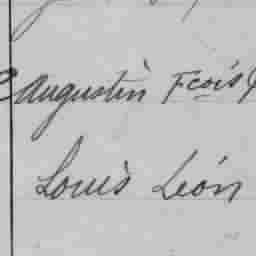 Augustin Fcois
Louis Léon